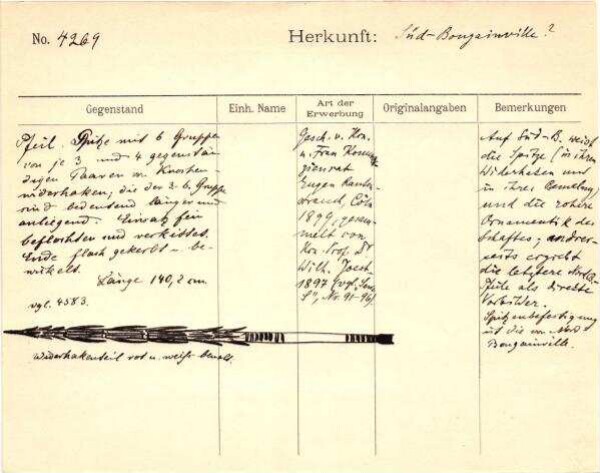 No. 4269
Herkunft: Süd-Bougainville?
Gegenstand
Einh. Name
Art der Erwerbung
Originalangaben
Bemerkungen
Pfeil. Spitze mit 6 Gruppen
von je 3 und 4 gegenstän-
digen Paaren von Knochen-
widerhaken, die der 2.-6. Gruppe
sind bedeutend länger und
anliegend. Einsatz fein
beflochten und verkittet.
Ende flach gekerbt - be-
wickelt.
Länge 140,2 cm.
vgl. 4383.
Widerhakenteil rot u. weiß bemalt.
Gesch. v. Hrn.
u. Frau Kommer-
zienrat
Eugen
Cöln
1899, gesam-
melt von
Hrn Prof. Dr
Wilh. Joest
1897 (vgl.
Nr. 91-96)
Auf Süd-B. weist
die Spitze (in ihren
Widerhaken und
in ihrer Bemalung)
und die rohere
Ornamentik des
Schaftes; andrer-
seits ergiebt
die letztere
Pfeile als direkte
Vorbilder.
Spitzenbefestigung
ist die von Nord
Bougainville.